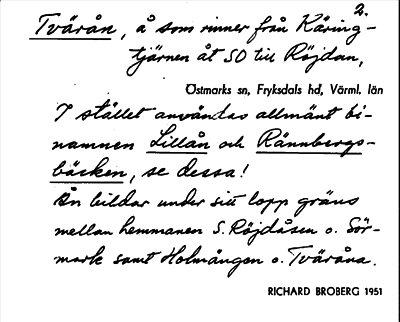 2.
Tvärån, å som rinner från Käring-
tjärnen åt SO till Röjdan,
Östmarks sn, Fryksdals hd, Värml. län
I stället användas allmänt bi-
namnen Lillån och Rännbergs-
bäcken, se dessa!
Ån bildar under sitt lopp gräns
mellan hemmanen S. Röjdåsen o. Sör-
mark samt Holmången o. Tväråna.
RICHARD BROBERG 1951